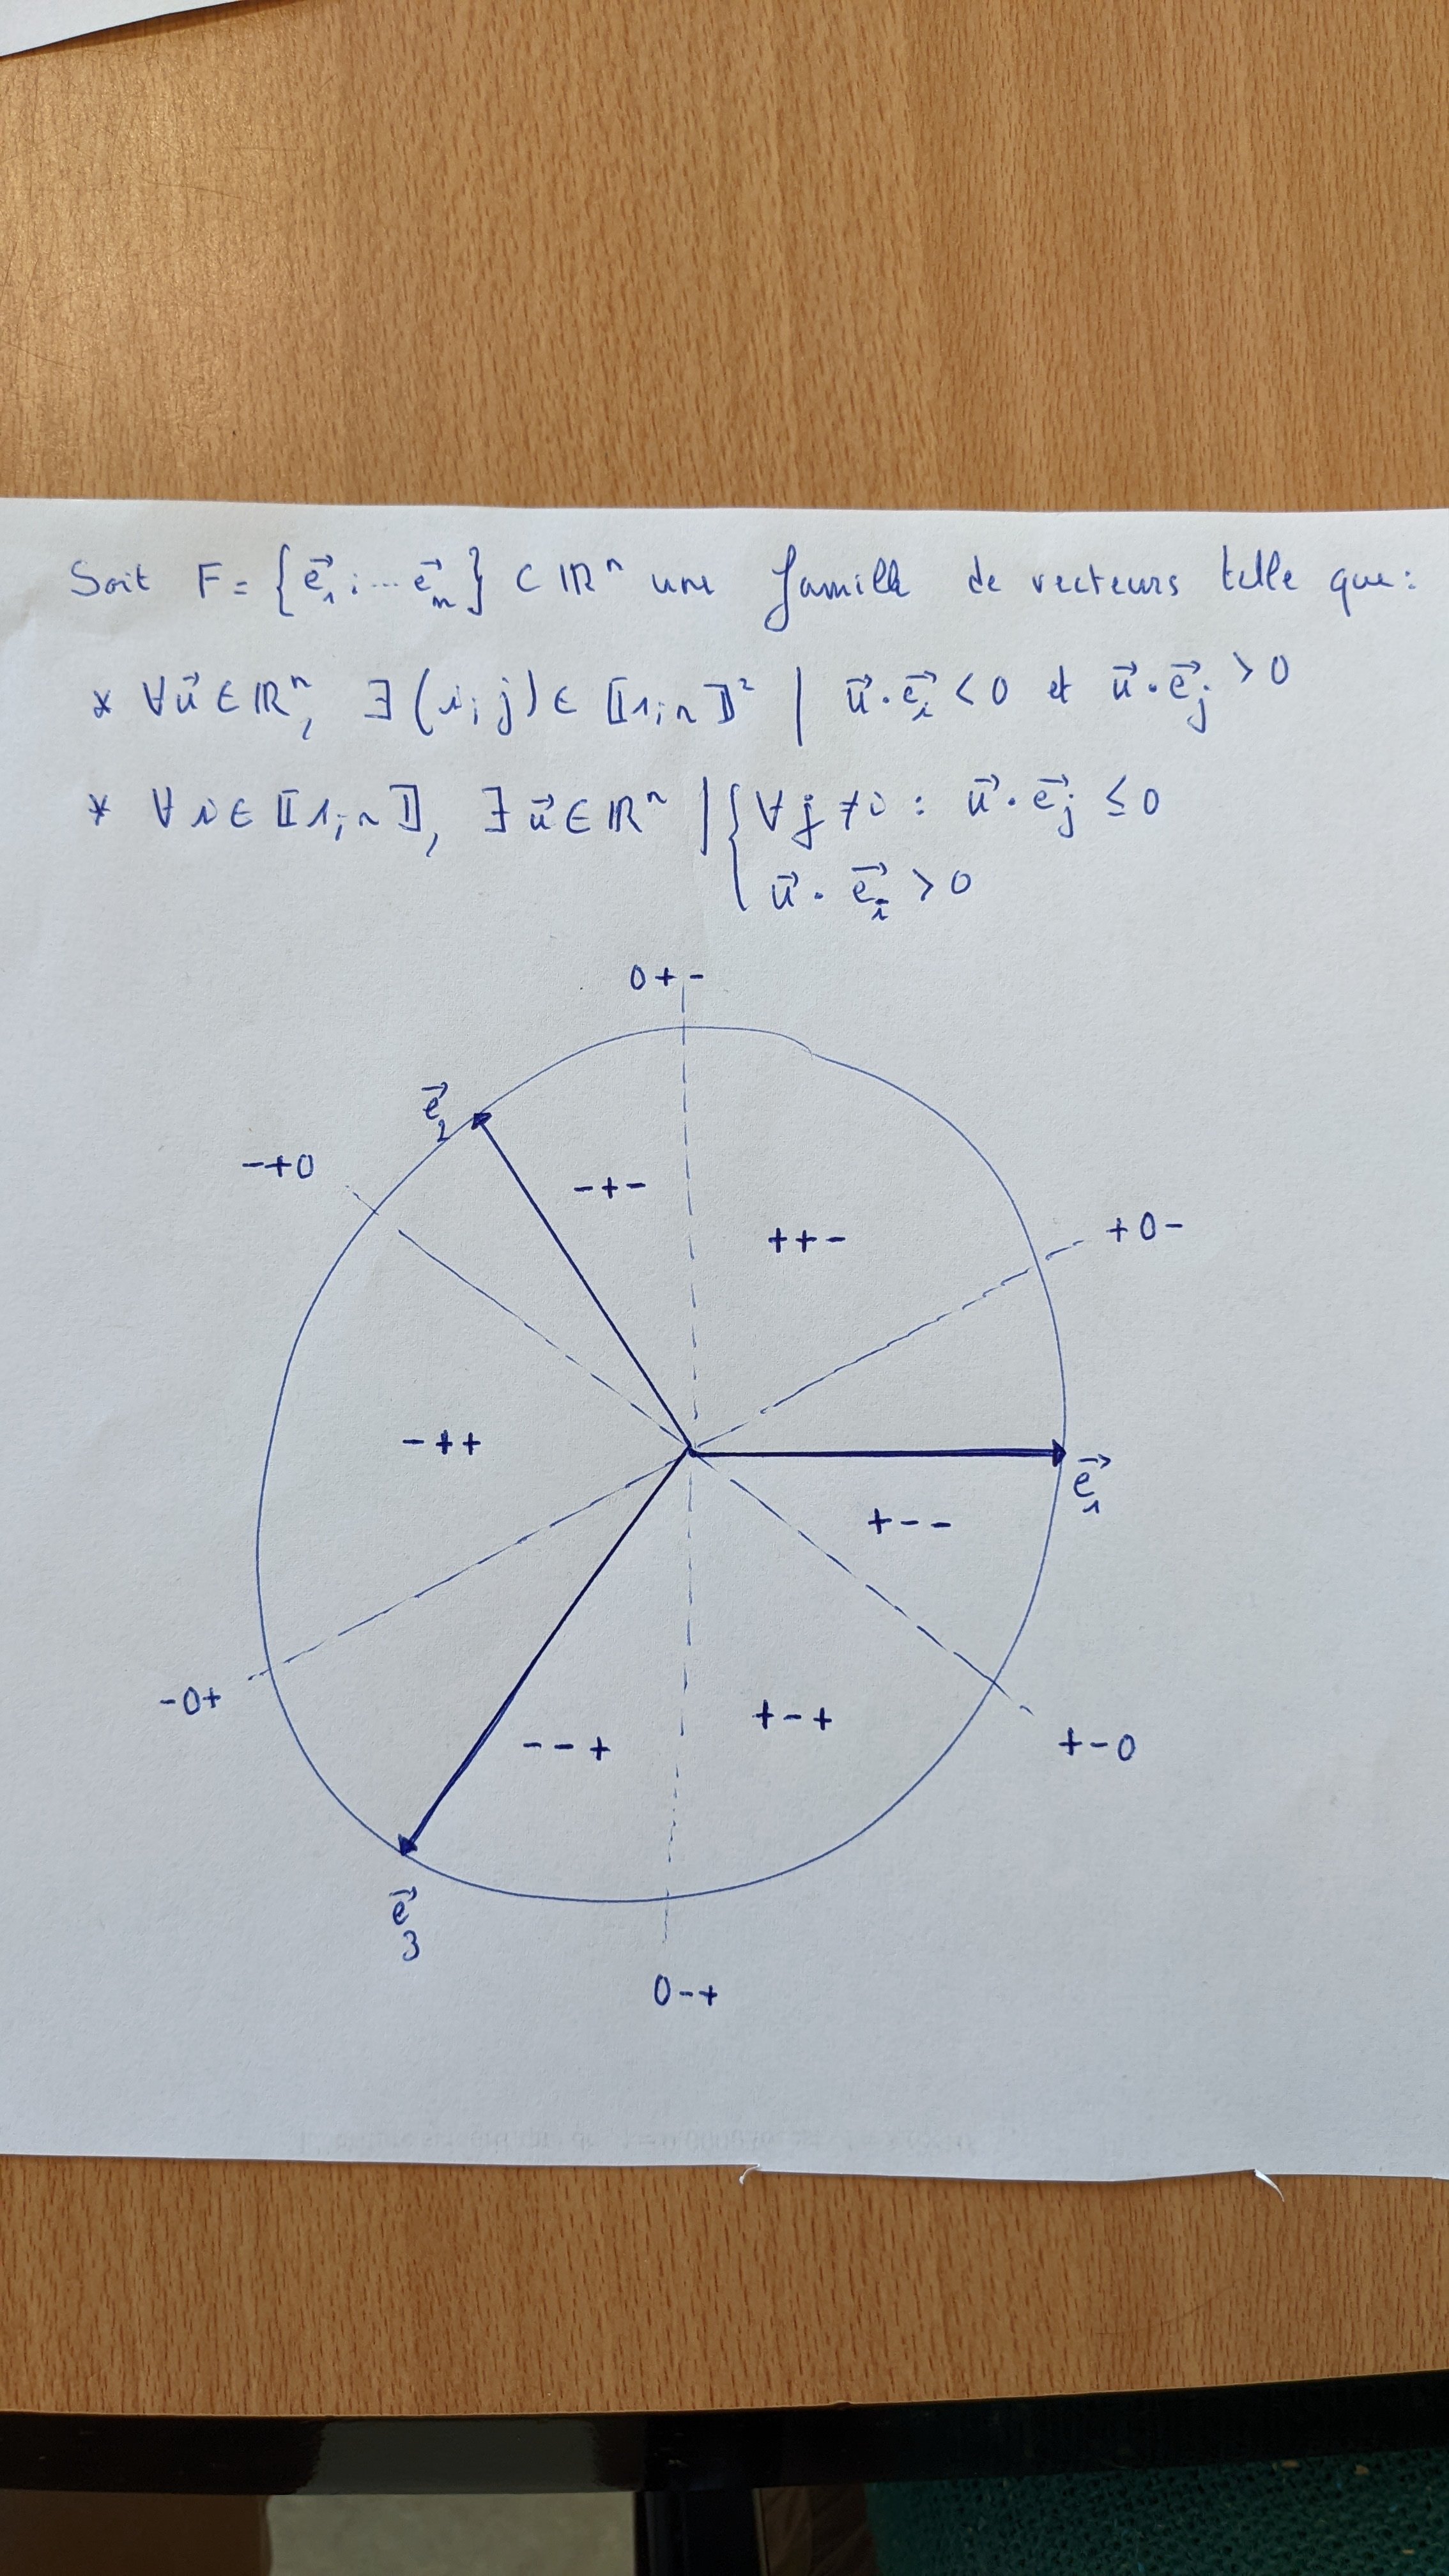 Soit F = {e⃗₁ ; ... e⃗ₘ} ⊂ ℝⁿ une famille de vecteurs telle que :
* ∀u⃗ ∈ ℝⁿ, ∃(i;j) ∈ ⟦1;n⟧² | u⃗·e⃗ᵢ < 0 et u⃗·e⃗ⱼ > 0
* ∀i ∈ ⟦1;n⟧, ∃u⃗ ∈ ℝⁿ | { ∀j≠i : u⃗·e⃗ⱼ ≤ 0
u⃗·e⃗ᵢ > 0
0+-
e⃗₂
-+0
-+-
++-
+0-
-++
e⃗₁
+--
-0+
--+
+-+
+-0
e⃗₃
0-+